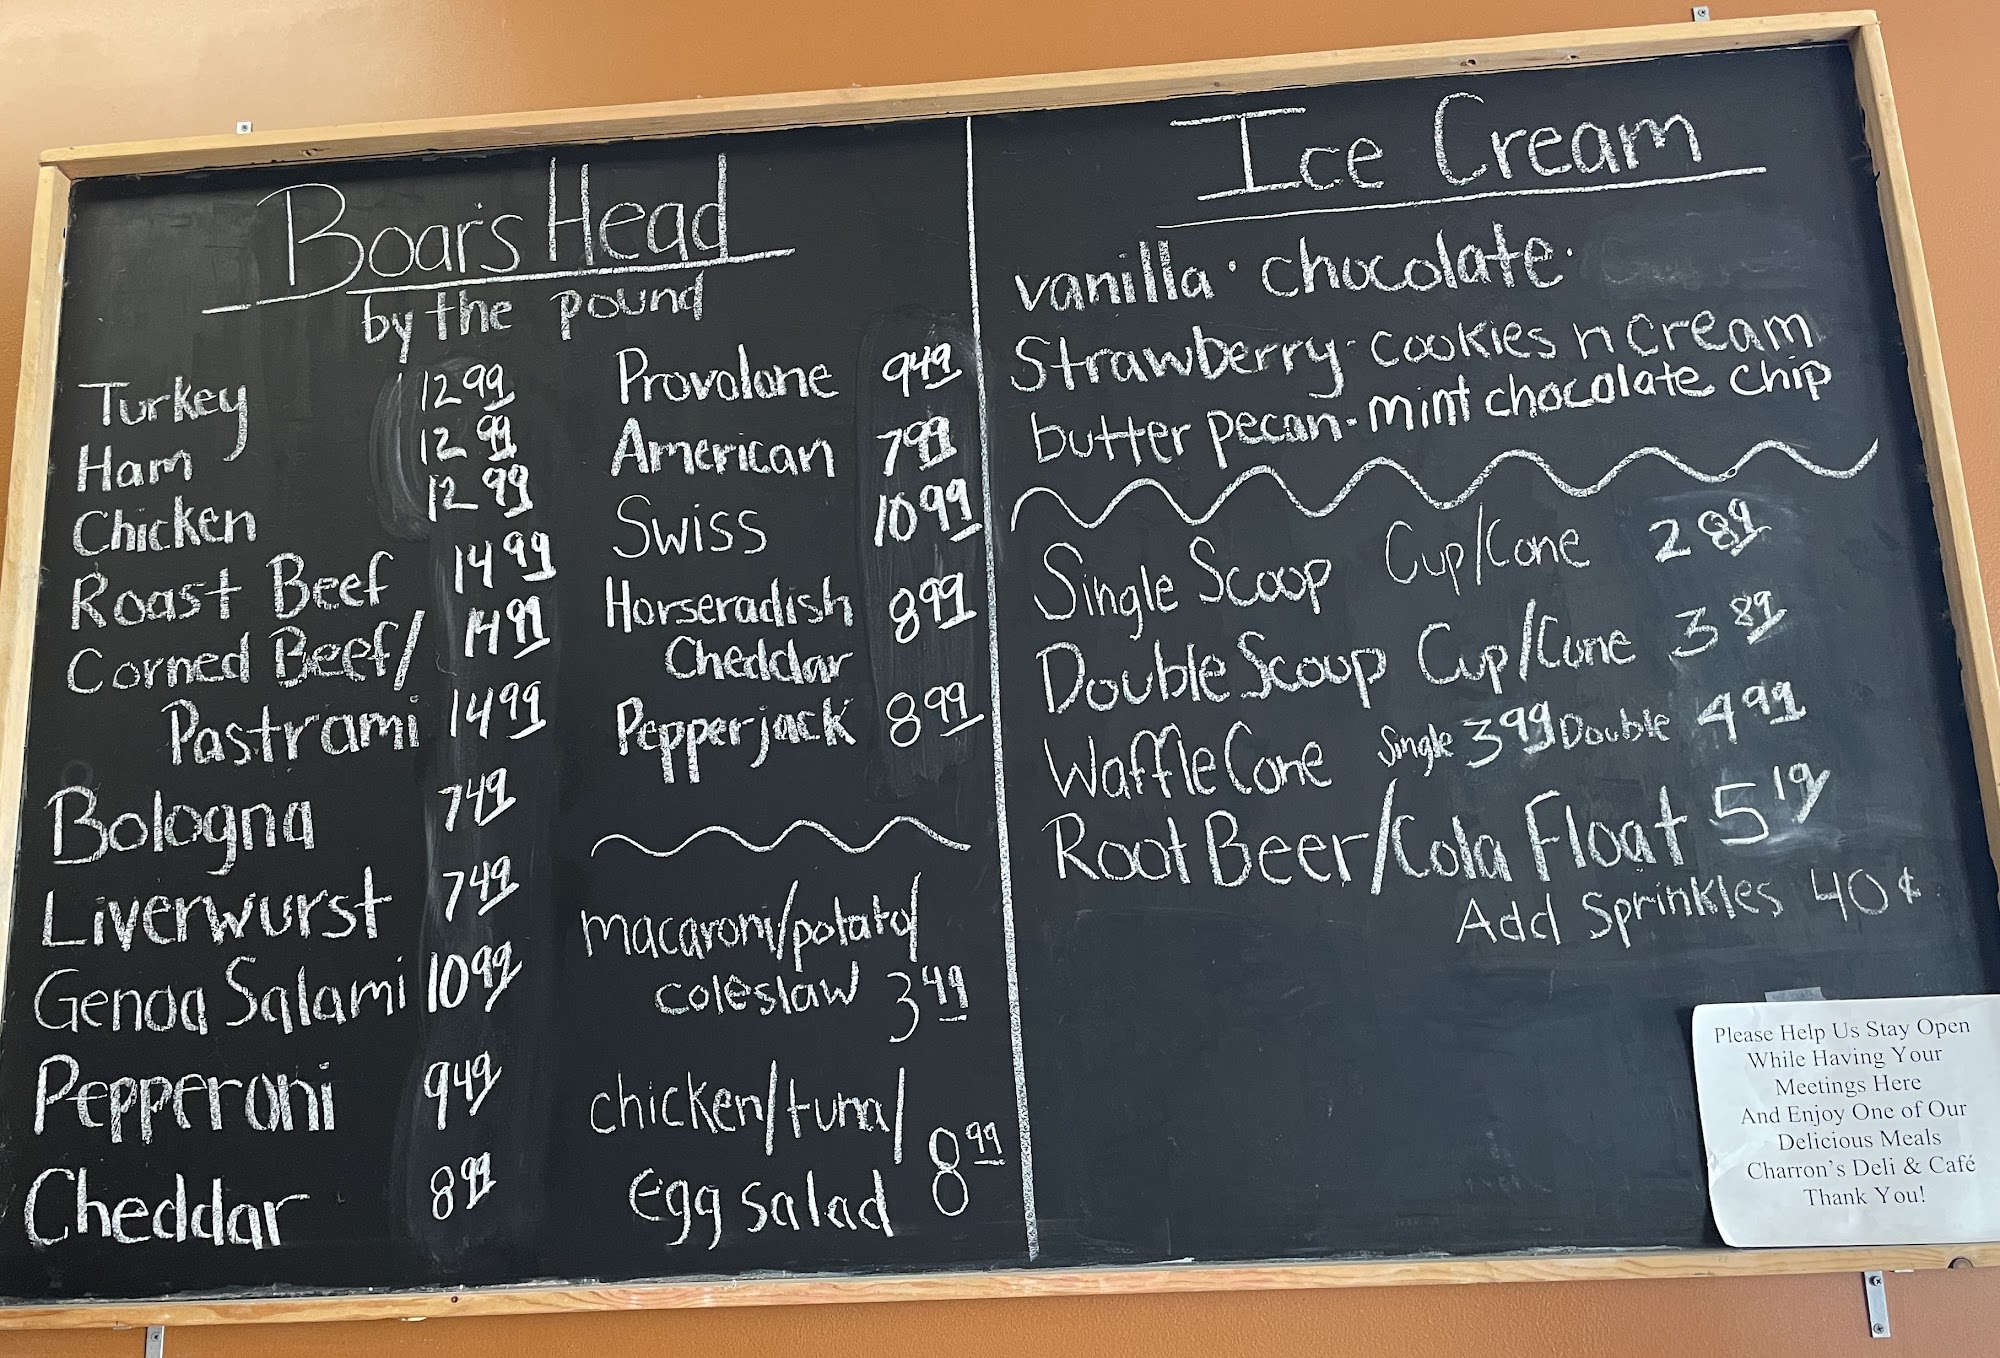 Boar's Head
by the pound
Turkey 12.99
Ham 12.99
Chicken 12.99
Roast Beef 14.99
Corned Beef/ 14.99
Pastrami 14.99
Bologna 7.49
Liverwurst 7.49
Genoa Salami 10.99
Pepperoni 9.49
Cheddar 8.99
Provolone 9.49
American 7.99
Swiss 10.99
Horseradish 8.99
Cheddar
Pepperjack 8.99
macaroni/potato/
coleslaw 3.49
chicken/tuna/
egg salad 8.99
Ice Cream
vanilla · chocolate ·
Strawberry · cookies n cream
butter pecan · mint chocolate chip
Single Scoop Cup/Cone 2.89
Double Scoop Cup/Cone 3.89
Waffle Cone Single 3.99 Double 4.99
Root Beer/Cola Float 5.19
Add Sprinkles 40¢
Please Help Us Stay Open
While Having Your
Meetings Here
And Enjoy One of Our
Delicious Meals
Charron's Deli & Café
Thank You!